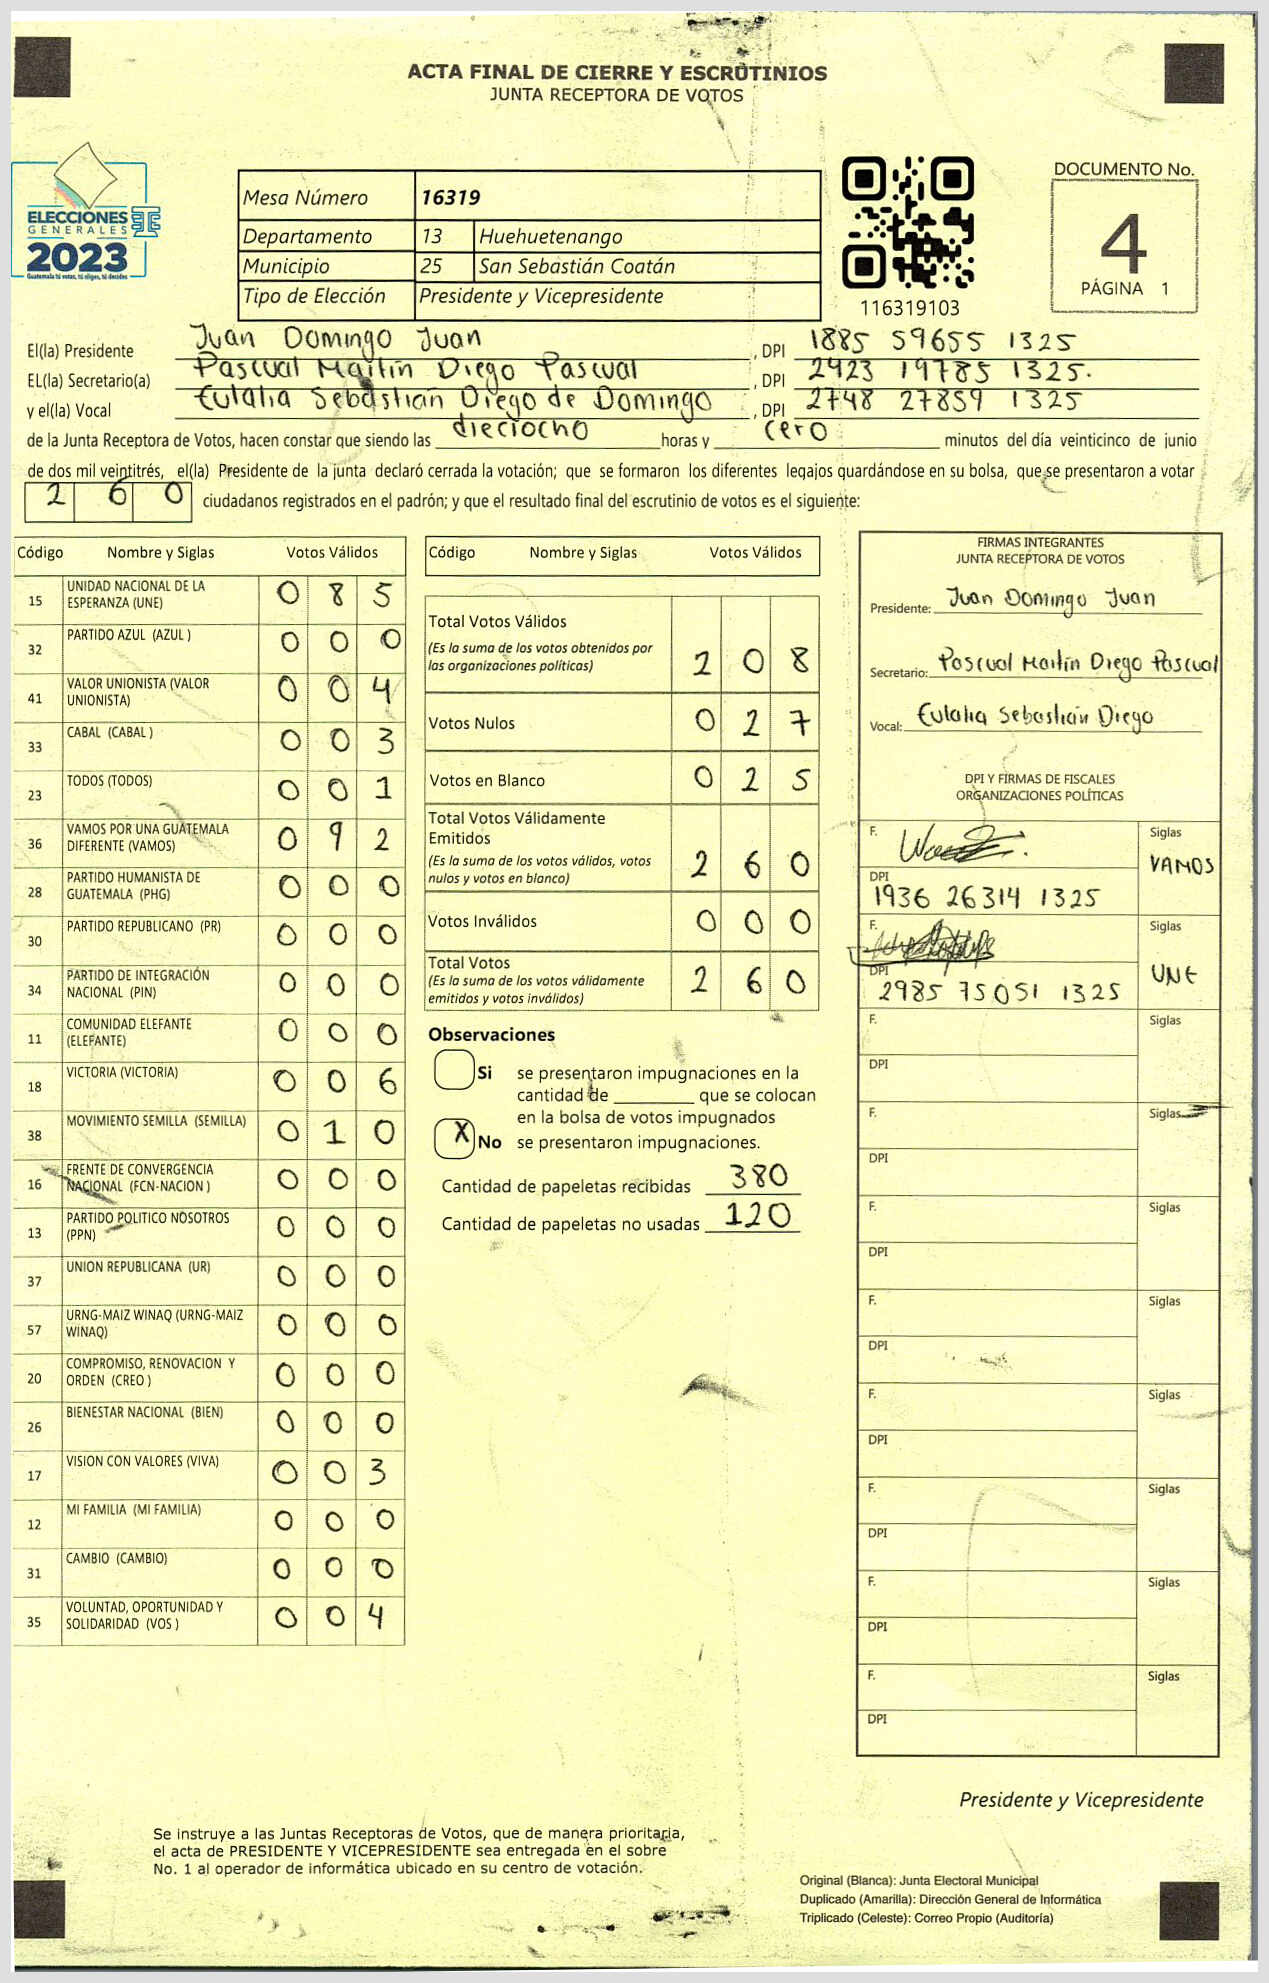 ACTA FINAL DE CIERRE Y ESCRUTINIOS
JUNTA RECEPTORA DE VOTOS
ELECCIONES
GENERALES
2023
Guatemala tú votas, tú eliges, tú decides
Mesa Número 16319
Departamento 13 Huehuetenango
Municipio 25 San Sebastián Coatán
Tipo de Elección Presidente y Vicepresidente
116319103
DOCUMENTO No.
4
PÁGINA 1
El(la) Presidente Juan Domingo Juan , DPI 1885 59655 1325
EL(la) Secretario(a) Pascual Martín Diego Pascual , DPI 2923 19785 1325.
y el(la) Vocal Eulalia Sebastián Diego de Domingo , DPI 2748 27859 1325
de la Junta Receptora de Votos, hacen constar que siendo las dieciocho horas y cero minutos del día veinticinco de junio
de dos mil veintitrés, el(la) Presidente de la junta declaró cerrada la votación; que se formaron los diferentes legajos quardándose en su bolsa, que se presentaron a votar
2 6 0 ciudadanos registrados en el padrón; y que el resultado final del escrutinio de votos es el siguiente:
Código Nombre y Siglas Votos Válidos
15 UNIDAD NACIONAL DE LA ESPERANZA (UNE) 0 8 5
32 PARTIDO AZUL (AZUL ) 0 0 0
41 VALOR UNIONISTA (VALOR UNIONISTA) 0 0 4
33 CABAL (CABAL ) 0 0 3
23 TODOS (TODOS) 0 0 1
36 VAMOS POR UNA GUATEMALA DIFERENTE (VAMOS) 0 9 2
28 PARTIDO HUMANISTA DE GUATEMALA (PHG) 0 0 0
30 PARTIDO REPUBLICANO (PR) 0 0 0
34 PARTIDO DE INTEGRACIÓN NACIONAL (PIN) 0 0 0
11 COMUNIDAD ELEFANTE (ELEFANTE) 0 0 0
18 VICTORIA (VICTORIA) 0 0 6
38 MOVIMIENTO SEMILLA (SEMILLA) 0 1 0
16 FRENTE DE CONVERGENCIA NACIONAL (FCN-NACION ) 0 0 0
13 PARTIDO POLITICO NOSOTROS (PPN) 0 0 0
37 UNION REPUBLICANA (UR) 0 0 0
57 URNG-MAIZ WINAQ (URNG-MAIZ WINAQ) 0 0 0
20 COMPROMISO, RENOVACION Y ORDEN (CREO ) 0 0 0
26 BIENESTAR NACIONAL (BIEN) 0 0 0
17 VISION CON VALORES (VIVA) 0 0 3
12 MI FAMILIA (MI FAMILIA) 0 0 0
31 CAMBIO (CAMBIO) 0 0 0
35 VOLUNTAD, OPORTUNIDAD Y SOLIDARIDAD (VOS ) 0 0 4
Código Nombre y Siglas Votos Válidos
Total Votos Válidos
(Es la suma de los votos obtenidos por
las organizaciones políticas) 2 0 8
Votos Nulos 0 2 7
Votos en Blanco 0 2 5
Total Votos Válidamente
Emitidos
(Es la suma de los votos válidos, votos
nulos y votos en blanco) 2 6 0
Votos Inválidos 0 0 0
Total Votos
(Es la suma de los votos válidamente
emitidos y votos inválidos) 2 6 0
Observaciones
Si se presentaron impugnaciones en la
cantidad de que se colocan
en la bolsa de votos impugnados
X No se presentaron impugnaciones.
Cantidad de papeletas recibidas 380
Cantidad de papeletas no usadas 120
FIRMAS INTEGRANTES
JUNTA RECEPTORA DE VOTOS
Presidente: Juan Domingo Juan
Secretario: Pascual Martín Diego Pascual
Vocal: Eulalia Sebastián Diego
DPI Y FIRMAS DE FISCALES
ORGANIZACIONES POLÍTICAS
F. Siglas
VAMOS
DPI
1936 26314 1325
F. Siglas
UNE
DPI
2985 75051 1325
F. Siglas
DPI
F. Siglas
DPI
F. Siglas
DPI
F. Siglas
DPI
F. Siglas
DPI
F. Siglas
DPI
F. Siglas
DPI
F. Siglas
DPI
Presidente y Vicepresidente
Se instruye a las Juntas Receptoras de Votos, que de manera prioritaria,
el acta de PRESIDENTE Y VICEPRESIDENTE sea entregada en el sobre
No. 1 al operador de informática ubicado en su centro de votación.
Original (Blanca): Junta Electoral Municipal
Duplicado (Amarilla): Dirección General de Informática
Triplicado (Celeste): Correo Propio (Auditoría)